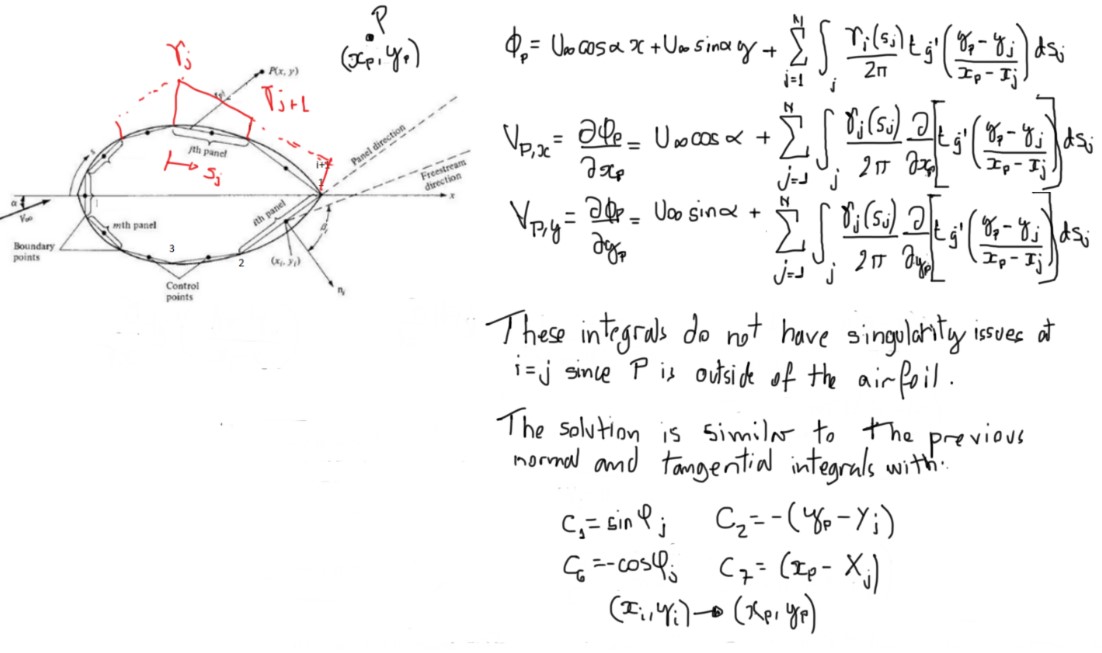 P
(x_p, y_p)
γ_j
γ_{j+1}
P(x, y)
r_{pj}
jth panel
S_j
i+1
1
Panel direction
Freestream direction
x
s
α
V∞
mth panel
ith panel
β_i
Boundary points
3
2
(x_i, y_i)
Control points
n_i
ϕ_p = U∞cosα x + U∞ sinα y + ∑_{j=1}^{N} ∫_j γ_j(s_j)/2π tg⁻¹((y_p − y_j)/(x_p − x_j)) ds_j
V_{P,x} = ∂φ_p/∂x_p = U∞cos α + ∑_{j=1}^{N} ∫_j γ_j(s_j)/2π ∂/∂x_p [tg⁻¹((y_p − y_j)/(x_p − x_j))] ds_j
V_{P,y} = ∂φ_p/∂y_p = U∞ sinα + ∑_{j=1}^{N} ∫_j γ_j(s_j)/2π ∂/∂y_p [tg⁻¹((y_p − y_j)/(x_p − x_j))] ds_j
These integrals do not have singularity issues at
i=j since P is outside of the airfoil.
The solution is similar to the previous
normal and tangential integrals with:
C_5 = sin φ_j C_2 = −(y_p − Y_j)
C_6 = −cosφ_j C_7 = (x_p − X_j)
(x_i, y_i) → (x_p, y_p)